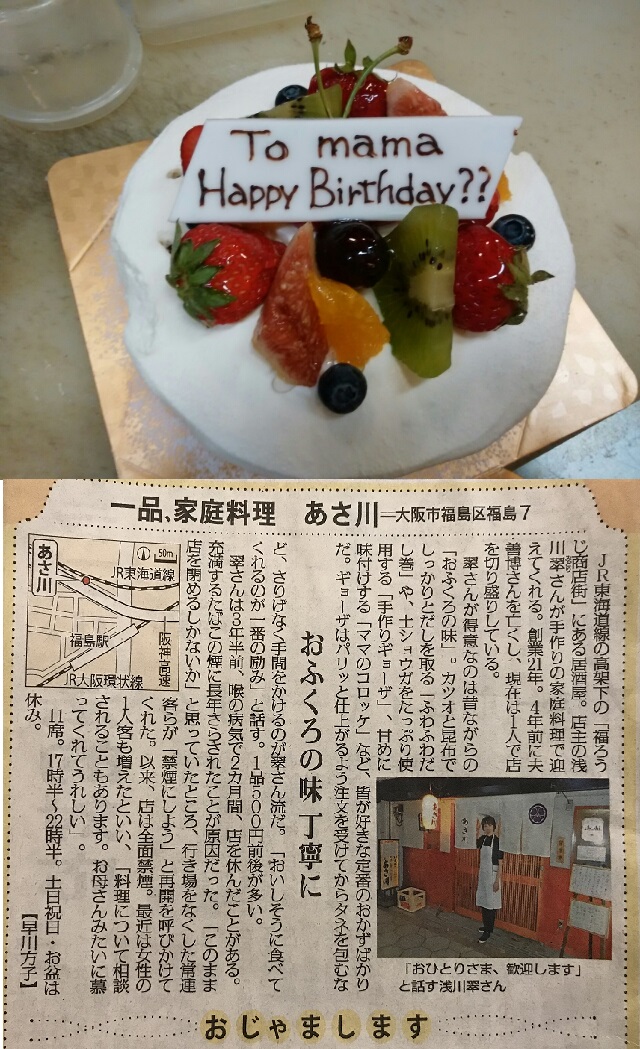 To mama
Happy Birthday??
一品、家庭料理 あさ川―大阪市福島区福島7
JR東海道線の高架下の「福ろう
じ商店街」にある居酒屋。店主の浅
川翠さんが手作りの家庭料理で迎
えてくれる。創業21年。4年前に夫
善博さんを亡くし、現在は1人で店
を切り盛りしている。
翠さんが得意なのは昔ながらの
「おふくろの味」。カツオと昆布で
しっかりとだしを取る「ふわふわだ
し巻」や、土ショウガをたっぷり使
用する「手作りギョーザ」、甘めに
味付けする「ママのコロッケ」など、皆が好きな定番のおかずばかり
だ。ギョーザはパリッと仕上がるよう注文を受けてからタネを包むな
おふくろの味 丁寧に
ど、さりげなく手間をかけるのが翠さん流だ。「おいしそうに食べて
くれるのが一番の励み」と話す。1品500円前後が多い。
翠さんは3年半前、喉の病気で2カ月間、店を休んだことがある。
充満するたばこの煙に長年さらされたことが原因だった。「このまま
店を閉めるしかないか」と思っていたところ、行き場をなくした常連
客らが「禁煙にしよう」と再開を呼びかけて
くれた。以来、店は全面禁煙。最近は女性の
1人客も増えたといい、「料理について相談
されることもあります。お母さんみたいに慕
ってくれてうれしい」。
11席。17時半～22時半。土日祝日・お盆は
休み。
【早川方子】
あさ川
50m
JR東海道線
福島駅
阪神高速
JR大阪環状線
「おひとりさま、歓迎します」
と話す浅川翠さん
おじゃまします